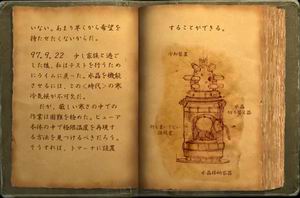 いない。あまり早くから希望を
持たせたくないからだ。
97.9.22 少し家族と過ご
した後、私はテストを行うため
にライムに戻った。水晶を機能
させるには、この〈時代〉の寒
冷気候が不可欠だ。
だが、厳しい寒さの中での
作業は困難を極めた。ビューア
本体の中で極限温度を再現す
る方法を見つけるべきだろう。
そうすれば、トマーナに設置
することができる。
冷却装置
水晶
水晶格納容器